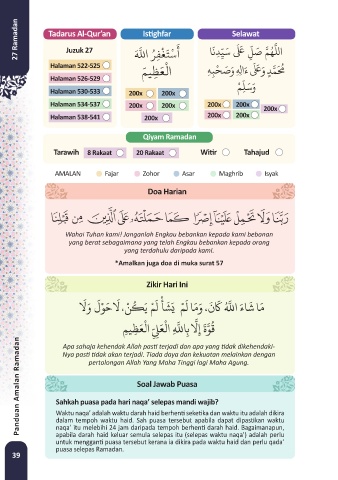 27 Ramadan
Tadarus Al-Qur'an
Istighfar
Selawat
Juzuk 27
Halaman 522-525
Halaman 526-529
Halaman 530-533
Halaman 534-537
Halaman 538-541
أَسْتَغْفِرُ اللَّهَ
الْعَظِيمَ
200x 200x
200x 200x
200x
اللَّهُمَّ صَلِّ عَلَى سَيِّدِنَا
مُحَمَّدٍ وَعَلَى آلِهِ وَصَحْبِهِ
وَسَلِّمْ
200x 200x
200x
200x 200x
Qiyam Ramadan
Tarawih 8 Rakaat 20 Rakaat Witir Tahajud
AMALAN Fajar Zohor Asar Maghrib Isyak
Doa Harian
رَبَّنَا وَلَا تَحْمِلْ عَلَيْنَا إِصْرًا كَمَا حَمَلْتَهُ عَلَى الَّذِينَ مِن قَبْلِنَا
Wahai Tuhan kami! Janganlah Engkau bebankan kepada kami bebanan
yang berat sebagaimana yang telah Engkau bebankan kepada orang
yang terdahulu daripada kami.
*Amalkan juga doa di muka surat 57
Zikir Hari Ini
مَا شَاءَ اللَّهُ كَانَ، وَمَا لَمْ يَشَأْ لَمْ يَكُنْ، لَا حَوْلَ وَلَا
قُوَّةَ إِلَّا بِاللَّهِ الْعَلِيِّ الْعَظِيمِ
Apa sahaja kehendak Allah pasti terjadi dan apa yang tidak dikehendaki-
Nya pasti tidak akan terjadi. Tiada daya dan kekuatan melainkan dengan
pertolongan Allah Yang Maha Tinggi lagi Maha Agung.
Soal Jawab Puasa
Sahkah puasa pada hari naqa' selepas mandi wajib?
Waktu naqa' adalah waktu darah haid berhenti seketika dan waktu itu adalah dikira
dalam tempoh waktu haid. Sah puasa tersebut apabila dapat dipastikan waktu
naqa' itu melebihi 24 jam daripada tempoh berhenti darah haid. Bagaimanapun,
apabila darah haid keluar semula selepas itu (selepas waktu naqa') adalah perlu
untuk mengganti puasa tersebut kerana ia dikira pada waktu haid dan perlu qada'
puasa selepas Ramadan.
Panduan Amalan Ramadan
39